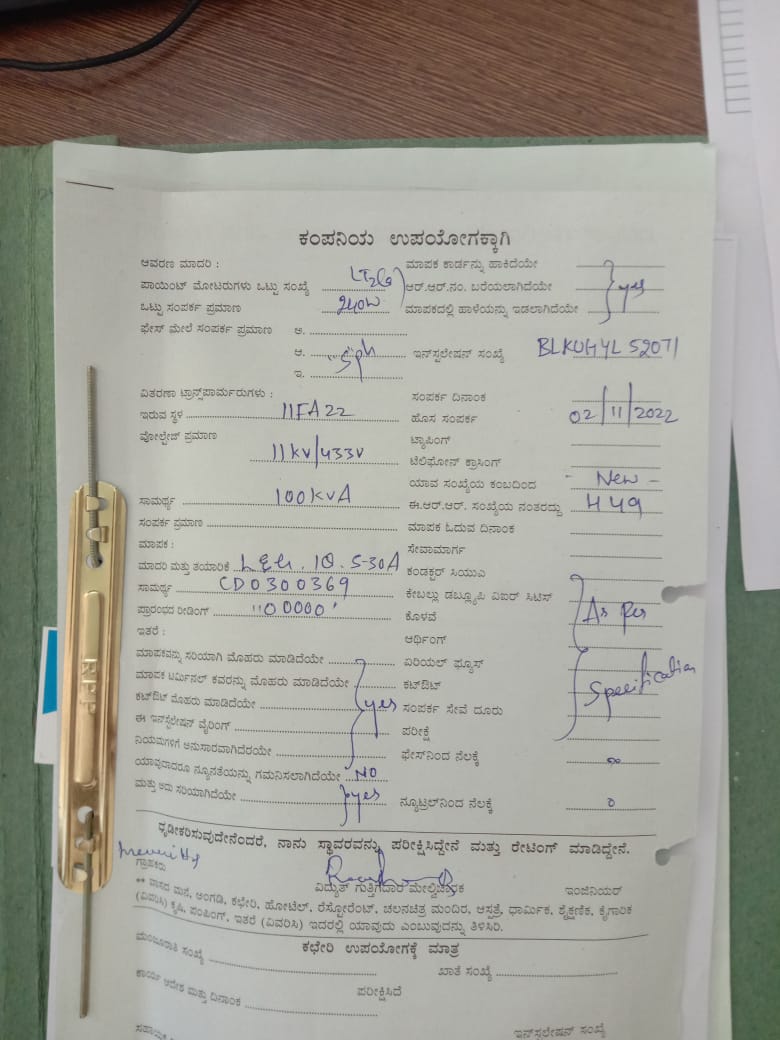 ಕಂಪನಿಯ ಉಪಯೋಗಕ್ಕಾಗಿ
ಆವರಣ ಮಾದರಿ : ಮಾಪಕ ಕಾರ್ಡನ್ನು ಹಾಕಿದೆಯೇ
ಪಾಯಿಂಟ್ ಮೋಟರುಗಳು ಒಟ್ಟು ಸಂಖ್ಯೆ LT2G ಆರ್.ಆರ್.ನಂ. ಬರೆಯಲಾಗಿದೆಯೇ yes
ಒಟ್ಟು ಸಂಪರ್ಕ ಪ್ರಮಾಣ 240W ಮಾಪಕದಲ್ಲಿ ಹಾಳೆಯನ್ನು ಇಡಲಾಗಿದೆಯೇ
ಫೇಸ್ ಮೇಲೆ ಸಂಪರ್ಕ ಪ್ರಮಾಣ ಅ.
ಆ. ಇನ್‌ಸ್ಟಲೇಷನ್ ಸಂಖ್ಯೆ BLKUHYL 52071
ಇ.
ವಿತರಣಾ ಟ್ರಾನ್ಸ್‌ಪಾರ್ಮರುಗಳು : ಸಂಪರ್ಕ ದಿನಾಂಕ
ಇರುವ ಸ್ಥಳ 11FA22 ಹೊಸ ಸಂಪರ್ಕ 02/11/2022
ವೋಲ್ಟೇಜ್ ಪ್ರಮಾಣ 11kv/433V ಟ್ಯಾಪಿಂಗ್
ಟೆಲಿಫೋನ್ ಕ್ರಾಸಿಂಗ್
ಯಾವ ಸಂಖ್ಯೆಯ ಕಂಬದಿಂದ - New -
ಸಾಮರ್ಥ್ಯ 100kVA ಈ.ಆರ್.ಆರ್. ಸಂಖ್ಯೆಯ ನಂತರದ್ದು 449
ಸಂಪರ್ಕ ಪ್ರಮಾಣ ಮಾಪಕ ಓದುವ ದಿನಾಂಕ
ಮಾಪಕ : ಸೇವಾಮಾರ್ಗ
ಮಾದರಿ ಮತ್ತು ತಯಾರಿಕೆ 5-30A ಕಂಡಕ್ಟರ್ ಸಿಯುಎ
ಸಾಮರ್ಥ್ಯ CD0300369 ಕೇಬಲ್ಲು ಡಬ್ಲ್ಯೂಪಿ ಏಐರ್ ಸಿಟಿಸ್
ಪ್ರಾರಂಭದ ರೀಡಿಂಗ್ "00000' ಕೊಳವೆ As Per
ಇತರೆ : ಆರ್ಥಿಂಗ್
ಮಾಪಕವನ್ನು ಸರಿಯಾಗಿ ಮೊಹರು ಮಾಡಿದೆಯೇ ಏರಿಯಲ್ ಫ್ಯೂಸ್
ಮಾಪಕ ಟರ್ಮಿನಲ್ ಕವರನ್ನು ಮೊಹರು ಮಾಡಿದೆಯೇ ಕಟ್‌ಔಟ್ Specification
ಕಟ್‌ಔಟ್ ಮೊಹರು ಮಾಡಿದೆಯೇ yes ಸಂಪರ್ಕ ಸೇವೆ ದೂರು
ಈ ಇನ್‌ಸ್ಟಲೇಷನ್ ವೈರಿಂಗ್ ಪರೀಕ್ಷೆ
ನಿಯಮಗಳಿಗೆ ಅನುಸಾರವಾಗಿದೆರಯೇ ಫೇಸ್‌ನಿಂದ ನೆಲಕ್ಕೆ ∞
ಯಾವುದಾದರೂ ನ್ಯೂನತೆಯನ್ನು ಗಮನಿಸಲಾಗಿದೆಯೇ NO
ಮತ್ತು ಅದು ಸರಿಯಾಗಿದೆಯೇ yes ನ್ಯೂಟ್ರಲ್‌ನಿಂದ ನೆಲಕ್ಕೆ 0
ಧೃಡೀಕರಿಸುವುದೇನೆಂದರೆ, ನಾನು ಸ್ಥಾವರವನ್ನು ಪರೀಕ್ಷಿಸಿದ್ದೇನೆ ಮತ್ತು ರೇಟಿಂಗ್ ಮಾಡಿದ್ದೇನೆ.
ಗ್ರಾಹಕರು ವಿದ್ಯುತ್ ಗುತ್ತಿಗೆದಾರ ಮೇಲ್ವಿಚಾರಕ ಇಂಜಿನಿಯರ್
** ವಾಸದ ಮನೆ, ಅಂಗಡಿ, ಕಛೇರಿ, ಹೋಟೆಲ್, ರೆಸ್ಟೋರೆಂಟ್, ಚಲನಚಿತ್ರ ಮಂದಿರ, ಆಸ್ಪತ್ರೆ, ಧಾರ್ಮಿಕ, ಶೈಕ್ಷಣಿಕ, ಕೈಗಾರಿಕ
(ವಿವರಿಸಿ) ಕೃಷಿ, ಪಂಪಿಂಗ್, ಇತರೆ (ವಿವರಿಸಿ) ಇದರಲ್ಲಿ ಯಾವುದು ಎಂಬುವುದನ್ನು ತಿಳಿಸಿರಿ.
ಕಛೇರಿ ಉಪಯೋಗಕ್ಕೆ ಮಾತ್ರ
ಮಂಜೂರಾತಿ ಸಂಖ್ಯೆ ಖಾತೆ ಸಂಖ್ಯೆ
ಕಾರ್ಯ ಆದೇಶ ಮತ್ತು ದಿನಾಂಕ ಪರೀಕ್ಷಿಸಿದೆ
ಇನ್‌ಸ್ಟಲೇಷನ್ ಸಂಖ್ಯೆ